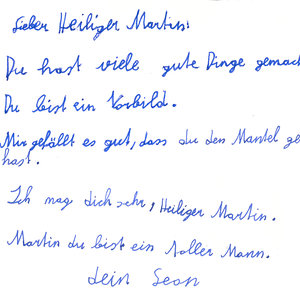 Lieber Heiliger Martin!
Du hast viele gute Dinge gemach
Du bist ein Vorbild.
Mir gefällt es gut, dass du den Mantel ge
hast.
Ich mag dich sehr, Heiliger Martin.
Martin du bist ein toller Mann.
dein Sean